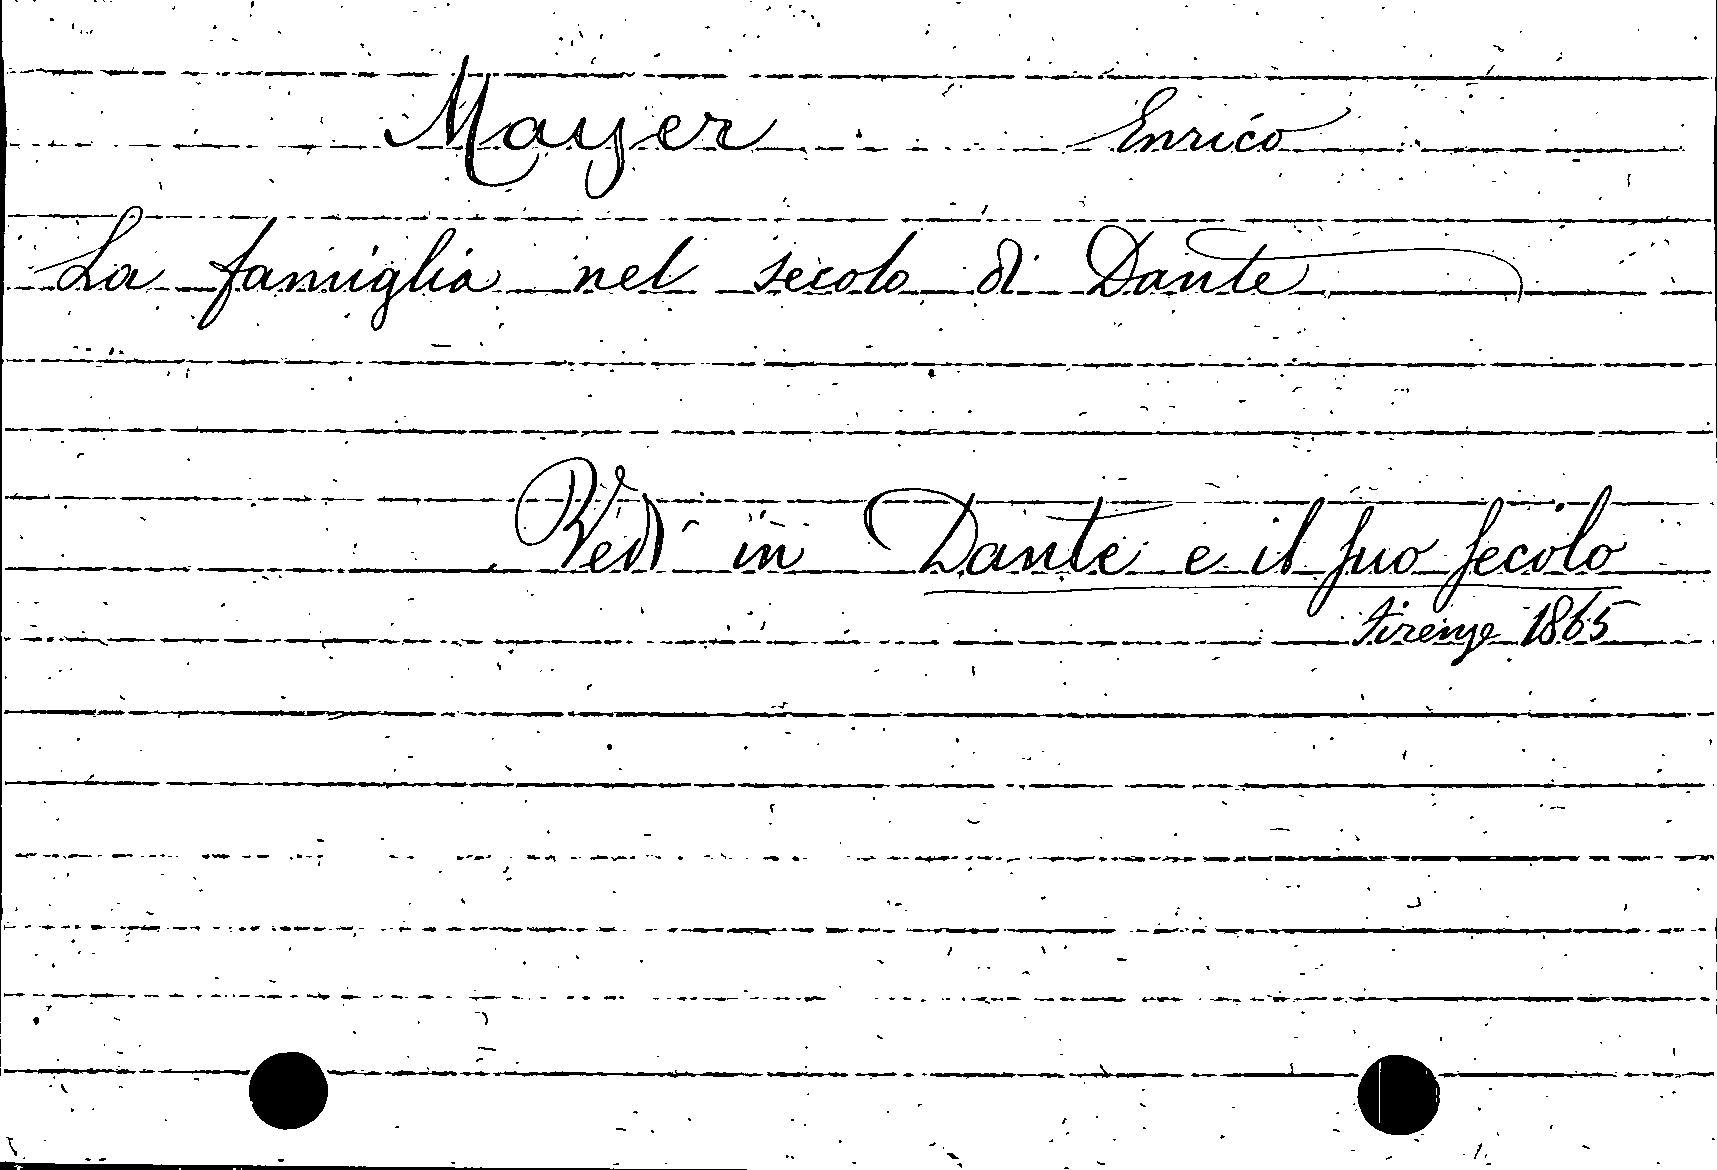 Mayer Enrico
La famiglia nel secolo di Dante
Vedi in Dante e il suo secolo
Firenze 1865